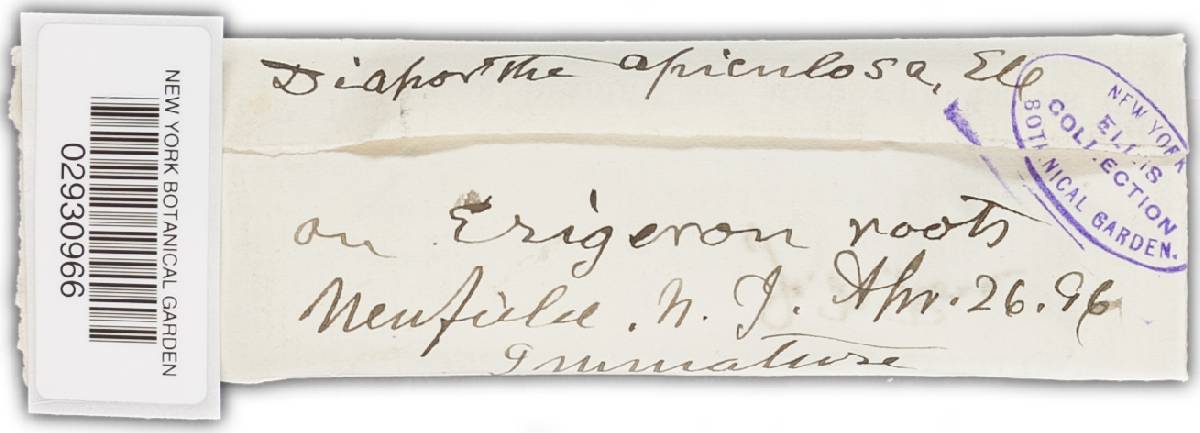 NEW YORK BOTANICAL GARDEN
02930966
Diaporthe apiculosa, Ell
on Erigeron roots
Newfield. N. J. Apr. 26. 96
Immature
NEW YORK
ELLIS
COLLECTION
BOTANICAL GARDEN.